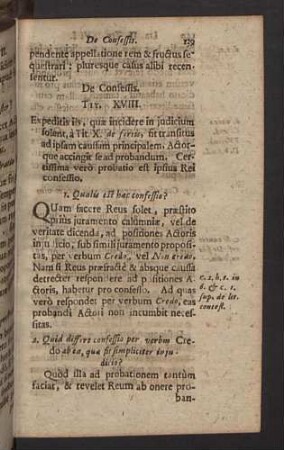 De Confessis. 179
pendente appellatione rem & fructus se-
questrari; pluresque casus alibi recen-
sentur.
De Confessis.
TIT. XVIII.
Expeditis iis, quæ incidere in judicium
solent, à Tit. X. de feriis, fit transitus
ad ipsam caussam principalem, Actor-
que accingit se ad probandum. Cer-
tissima verò probatio est ipsius Rei
confessio.
1. Qualis est hæc confessio?
QUam facere Reus solet, præstito
priùs juramento calumniæ, vel de
veritate dicenda, ad positiones Actoris
in judicio, sub simili juramento proposi-
tas, per verbum Credo, vel Non credo.
Nam si Reus præfractè & absque caussa
detrectet respondere ad positiones A-
ctoris, habetur pro confesso. Ad quas
verò respondet per verbum Credo, eas
probandi Actori non incumbit neces-
sitas.
c. 2. h. t. in
d. & c. 1.
sup. de lit.
contest.
2. Quid differt confessio per verbum Cre-
do ab ea, quæ fit simpliciter in ju-
dicio?
Quòd illa ad probationem tantùm
faciat, & revelet Reum ab onere pro-
ban-